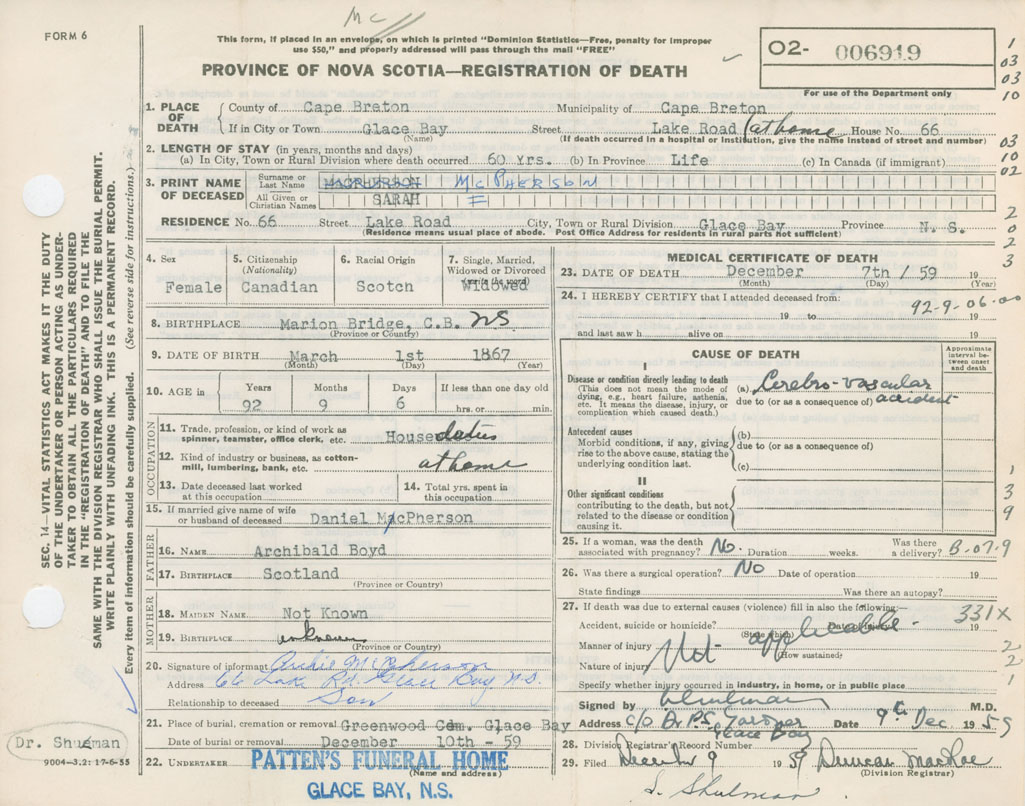 Mc
FORM 6
This form, if placed in an envelope, on which is printed "Dominion Statistics—Free, penalty for improper
use $50," and properly addressed will pass through the mail "FREE"
PROVINCE OF NOVA SCOTIA—REGISTRATION OF DEATH
O2- 006919
For use of the Department only
1
03
03
10
1. PLACE OF DEATH County of Cape Breton Municipality of Cape Breton
If in City or Town Glace Bay Street Lake Road (at home House No. 66
(Name) (If death occurred in a hospital or institution, give the name instead of street and number)
03
10
02
2. LENGTH OF STAY (in years, months and days)
(a) In City, Town or Rural Division where death occurred 60 Yrs. (b) In Province Life (c) In Canada (if immigrant)
3. PRINT NAME OF DECEASED Surname or Last Name MACPHERSON McPHERSON
All Given or Christian Names SARAH E
2
0
2
3
RESIDENCE No. 66 Street Lake Road City, Town or Rural Division Glace Bay Province N. S.
(Residence means usual place of abode. Post Office Address for residents in rural parts not sufficient)
4. Sex Female
5. Citizenship (Nationality) Canadian
6. Racial Origin Scotch
7. Single, Married, Widowed or Divorced (write the word) Widowed
8. BIRTHPLACE Marion Bridge, C.B. NS
(Province or Country)
9. DATE OF BIRTH March 1st 1867
(Month) (Day) (Year)
10. AGE in Years Months Days If less than one day old
92 9 6 hrs. or min.
OCCUPATION
11. Trade, profession, or kind of work as spinner, teamster, office clerk, etc. House duties
12. Kind of industry or business, as cotton-mill, lumbering, bank, etc. at home
13. Date deceased last worked at this occupation
14. Total yrs. spent in this occupation
15. If married give name of wife or husband of deceased Daniel McPherson
FATHER
16. NAME Archibald Boyd
17. BIRTHPLACE Scotland
(Province or Country)
MOTHER
18. MAIDEN NAME Not Known
19. BIRTHPLACE unknown
(Province or Country)
20. Signature of informant Archie McPherson
Address 66 Lake Rd. Glace Bay N.S.
Relationship to deceased Son
21. Place of burial, cremation or removal Greenwood Cem. Glace Bay
Date of burial or removal December 10th - 59
22. UNDERTAKER PATTEN'S FUNERAL HOME
(Name and address)
GLACE BAY, N.S.
MEDICAL CERTIFICATE OF DEATH
23. DATE OF DEATH December 7th / 59 19
(Month) (Day) (Year)
24. I HEREBY CERTIFY that I attended deceased from:
92-9-06-00
19 to 19
and last saw h alive on 19
CAUSE OF DEATH
Approximate interval between onset and death
I
Disease or condition directly leading to death
(This does not mean the mode of dying, e.g., heart failure, asthenia, etc. It means the disease, injury, or complication which caused death.)
(a) Cerebro-vascular
due to (or as a consequence of) accident
Antecedent causes
Morbid conditions, if any, giving rise to the above cause, stating the underlying condition last.
(b)
due to (or as a consequence of)
(c)
II
Other significant conditions contributing to the death, but not related to the disease or condition causing it.
1
3
9
25. If a woman, was the death associated with pregnancy? No. Duration weeks. Was there a delivery? B-07-9
26. Was there a surgical operation? No Date of operation 19
State findings Was there an autopsy?
27. If death was due to external causes (violence) fill in also the following:—
331X
Accident, suicide or homicide? (State which) Date of injury 19
Manner of injury (How sustained)
Nature of injury
Not applicable.
2
2
1
Specify whether injury occurred in industry, in home, or in public place
Signed by M.D.
Address c/o Dr. P.S. Gardner Date 9th Dec 1959
Glace Bay
28. Division Registrar's Record Number
29. Filed December 9 1959 Duncan MacRae
(Division Registrar)
S. Shulman
SEC. 14—VITAL STATISTICS ACT MAKES IT THE DUTY
OF THE UNDERTAKER OR PERSON ACTING AS UNDER-
TAKER TO OBTAIN ALL THE PARTICULARS REQUIRED
IN THE "REGISTRATION OF DEATH" AND TO FILE THE
SAME WITH THE DIVISION REGISTRAR WHO SHALL ISSUE THE BURIAL PERMIT.
WRITE PLAINLY WITH UNFADING INK. THIS IS A PERMANENT RECORD.
Every item of information should be carefully supplied. (See reverse side for instructions.)
Dr. Shulman
9004-3.2: 17-6-55